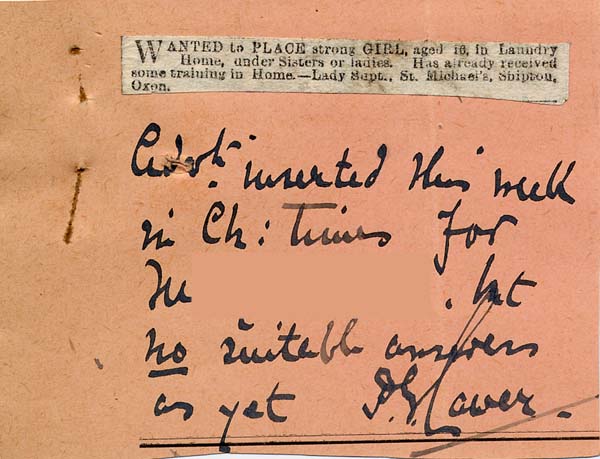 WANTED to PLACE strong GIRL, aged 16, in Laundry
Home, under Sisters or ladies. Has already received
some training in Home.—Lady Supt., St. Michael's, Shipton,
Oxon.
Advt. inserted this week
in Ch: Times for
. but
no suitable answers
as yet